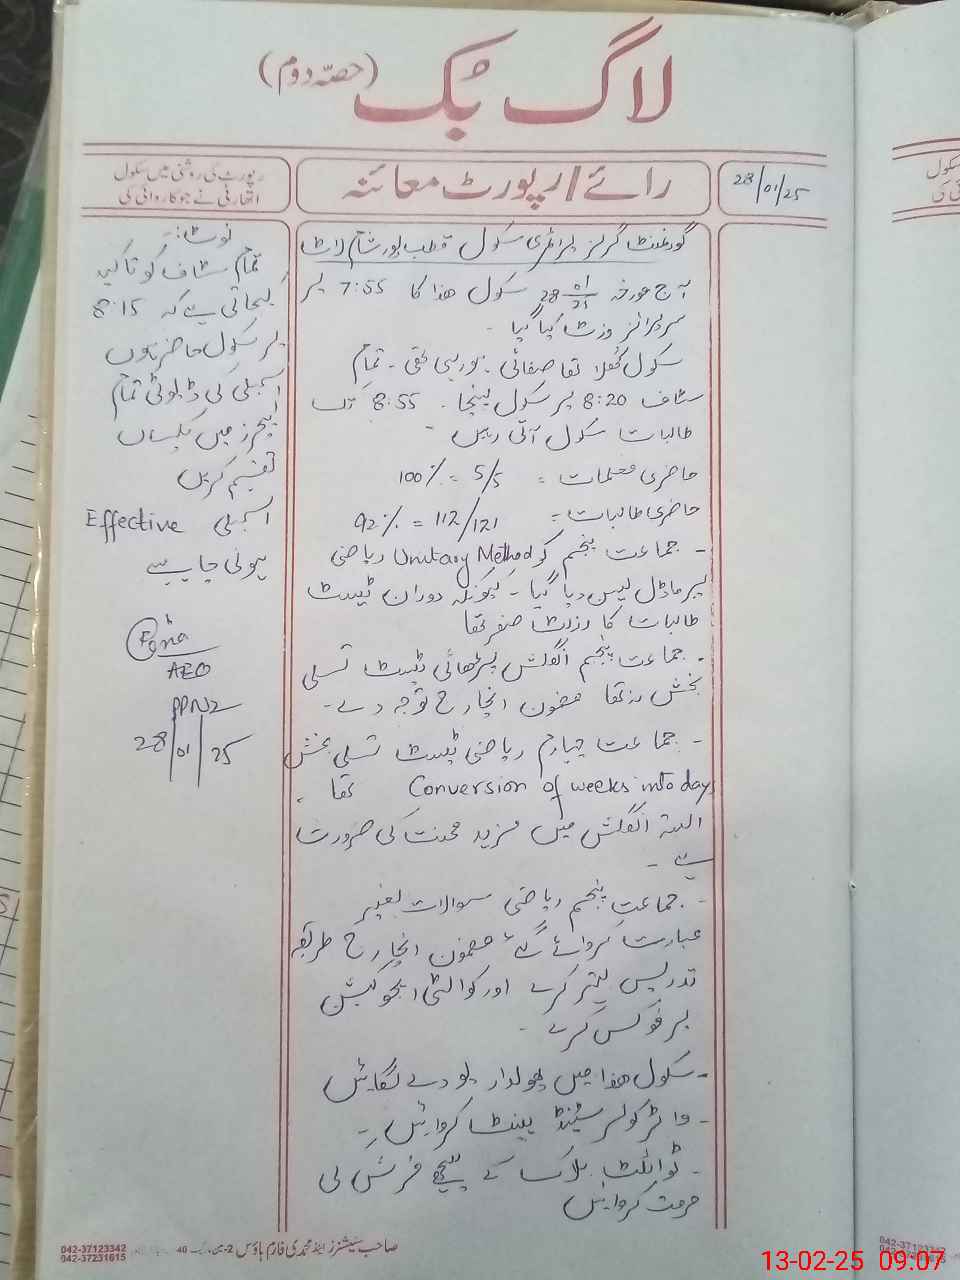 لاگ بُک (حصّہ دوم)
رپورٹ کی روشنی میں سکول
اتھارٹی نے جو کاروائی کی
رائے/رپورٹ معائنہ
28/01/25
گورنمنٹ گرلز پرائمری سکول قطب پور شام لاٹ
آج مورخہ 28 01 سکول ھذا کا 7:55 پر
سرپرائز وزٹ کیا گیا۔
سکول کُھلا تھا صفائی ہو رہی تھی۔ تمام
سٹاف 8:20 پر سکول پہنچا۔ 8:55 تک
طالبات سکول آتی رہیں۔
حاضری معلمات = 5/5 = 100%
حاضری طالبات = 112/121 = 92%
- جماعت پنجم کو Unitary Method ریاضی
پر ماڈل لیسن دیا گیا۔ کیونکہ دوران ٹیسٹ
طالبات کا رزلٹ صفر تھا
- جماعت پنجم انگلش پڑھائی ٹیسٹ تسلی
بخش نہ تھا مضمون انچارج توجہ دے۔
- جماعت چہارم ریاضی ٹیسٹ تسلی بخش
تھا Conversion of weeks into days ۔
البتہ انگلش میں مزید محنت کی ضرورت
ہے۔
- جماعت پنجم ریاضی سوالات بغیر
عبارت کروائے گئے مضمون انچارج طریقہ
تدریس بہتر کرے اور کوالٹی ایجوکیشن
پر فوکس کرے۔
- سکول ھذا میں پھولدار پودے لگائیں
- واٹر کولر سٹینڈ پینٹ کروائیں۔
- ٹوائلٹ بلاک کے پیچھے فرش کی
مرمت کروائیں
نوٹ:۔
تمام سٹاف کو تاکید
کی جاتی ہے کہ 8:15
پر سکول حاضر ہوں
اسمبلی کی ڈیوٹی تمام
ٹیچرز میں یکساں
تقسیم کریں
اسمبلی Effective
ہونی چاہیے
AEO
28/01/25
صاحب سٹیشنرز اینڈ محمدی فارم ہاؤس 2-
40
042-37123342
042-37231615
سکول
کی
042-37123342
042-37231615
13-02-25 09:07